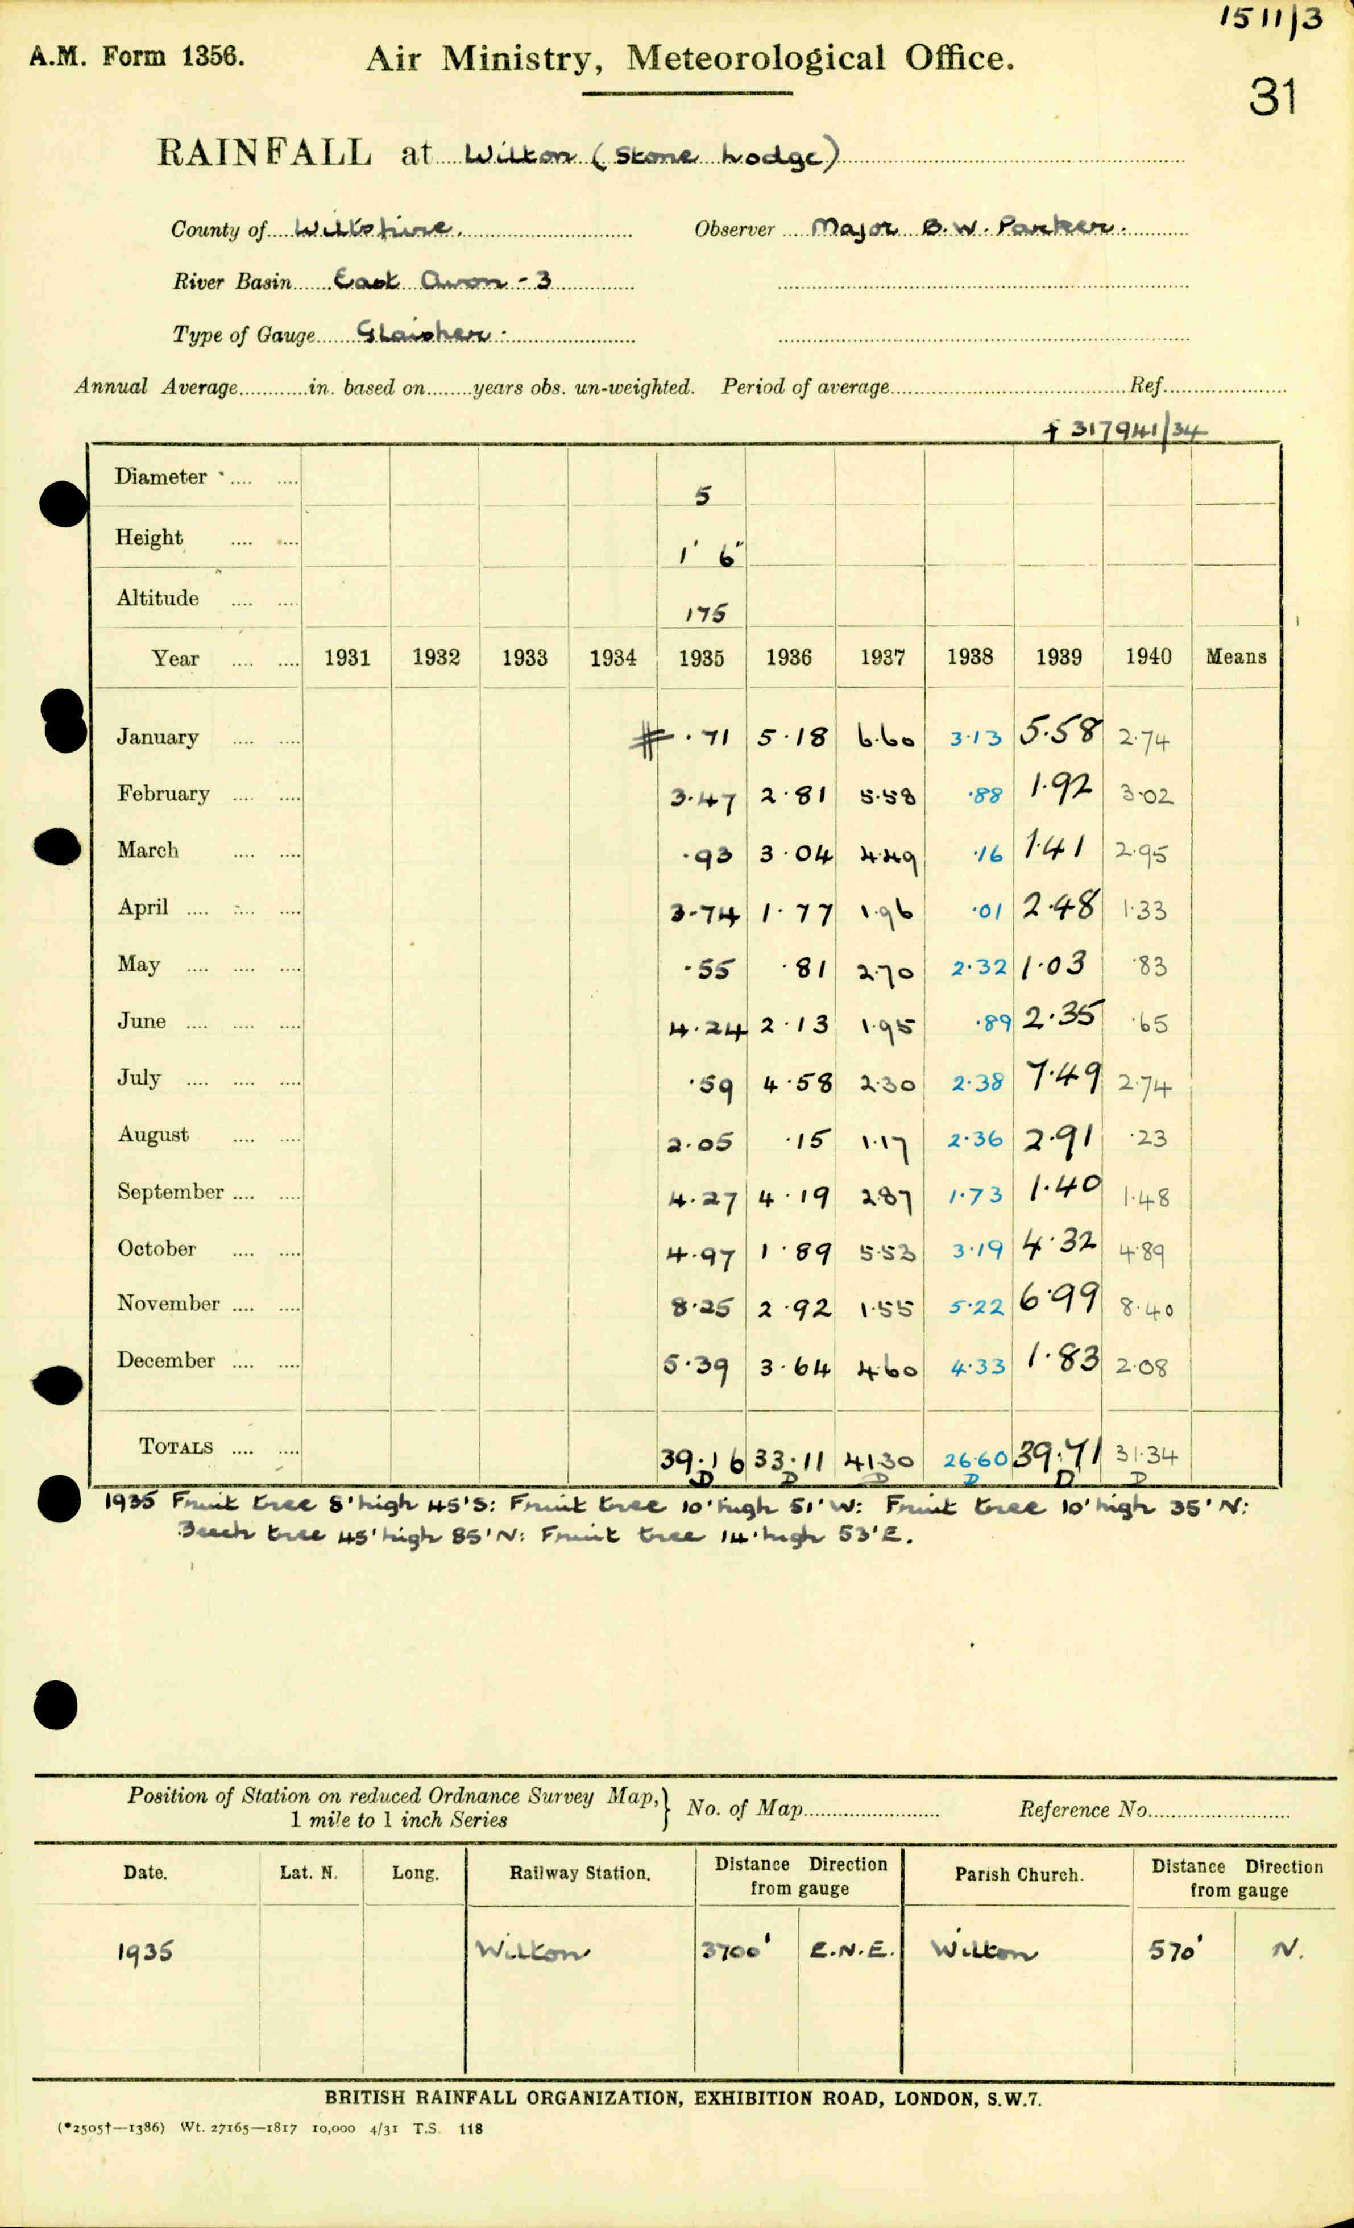 1511/3
A.M. Form 1356. Air Ministry, Meteorological Office.
31
RAINFALL at Wilton (Stone Lodge)
County of Wiltshire. Observer Major B.W. Parker.
River Basin East Avon - 3
Type of Gauge Glaisher.
Annual Average............in. based on........years obs. un-weighted. Period of average........................Ref................
317941/34
Diameter 5
Height 1' 6"
Altitude 175
Year 1931 1932 1933 1934 1935 1936 1937 1938 1939 1940 Means
January # .71 5.18 6.60 3.13 5.58 2.74
February 3.47 2.81 5.58 .88 1.92 3.02
March .93 3.04 4.49 .16 1.41 2.95
April 3.74 1.77 1.96 .01 2.48 1.33
May .55 .81 2.70 2.32 1.03 .83
June 4.24 2.13 1.95 .89 2.35 .65
July .59 4.58 2.30 2.38 7.49 2.74
August 2.05 .15 1.17 2.36 2.91 .23
September 4.27 4.19 2.87 1.73 1.40 1.48
October 4.97 1.89 5.53 3.19 4.32 4.89
November 8.25 2.92 1.55 5.22 6.99 8.40
December 5.39 3.64 4.60 4.33 1.83 2.08
TOTALS 39.16 33.11 41.30 26.60 39.71 31.34
D D D D D D
1935 Fruit tree 8' high 45'S: Fruit tree 10' high 51'W: Fruit tree 10' high 35'N:
Beech tree 45' high 85'N: Fruit tree 14' high 53'E.
Position of Station on reduced Ordnance Survey Map,} No. of Map........................ Reference No........................
1 mile to 1 inch Series
Date. Lat. N. Long. Railway Station. Distance Direction from gauge Parish Church. Distance Direction from gauge
1935 Wilton 3700' E.N.E. Wilton 570' N.
BRITISH RAINFALL ORGANIZATION, EXHIBITION ROAD, LONDON, S.W.7.
(*2505†—1386) Wt. 27165—1817 10,000 4/31 T.S. 118